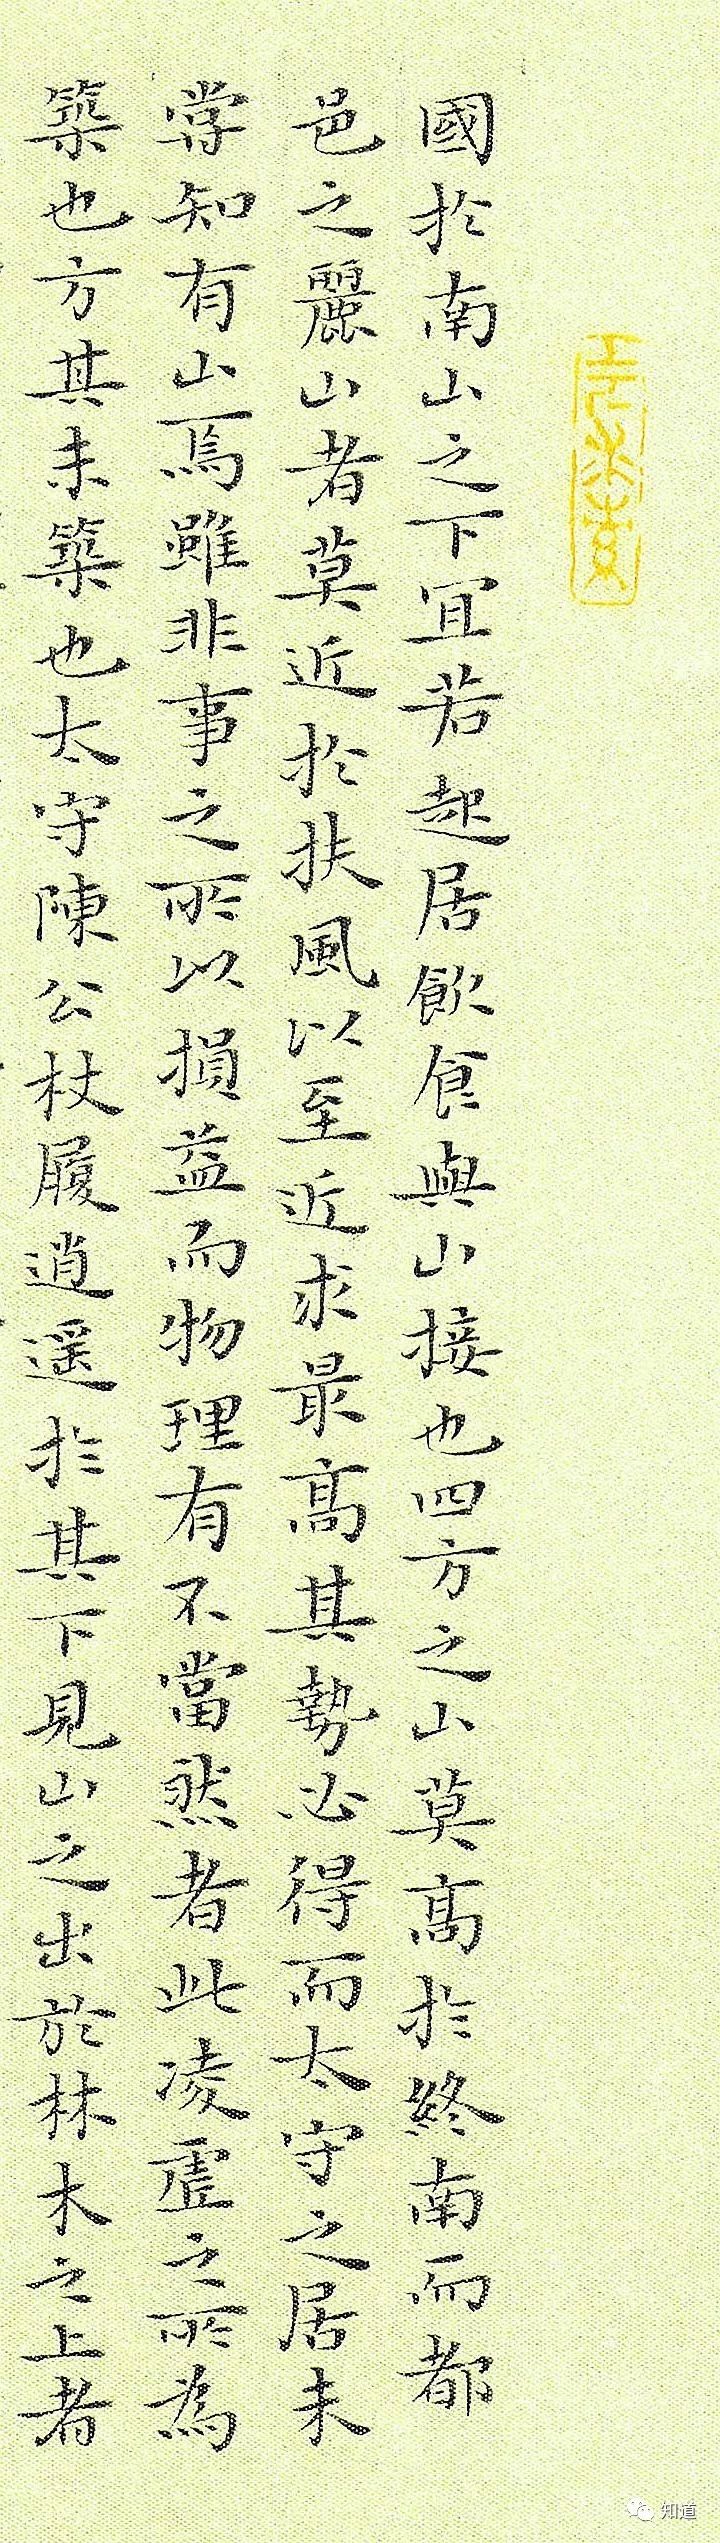 國於南山之下宜若起居飲食與山接也四方之山莫高於終南而都
邑之麗山者莫近於扶風以至近求最高其勢必得而太守之居未
嘗知有山焉雖非事之所以損益而物理有不當然者此凌虛之所為
築也方其未築也太守陳公杖履逍遥於其下見山之出於林木之上者
知道